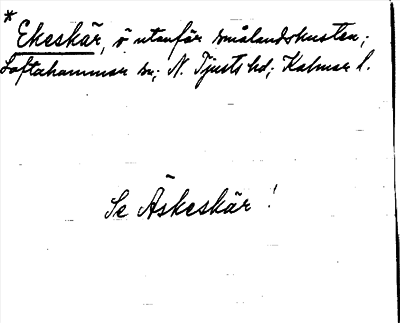 * Ekeskär, ö utanför Smålandskusten;
Loftahammar sn; N. Tjusts hd; Kalmar l.
Se Äskeskär!